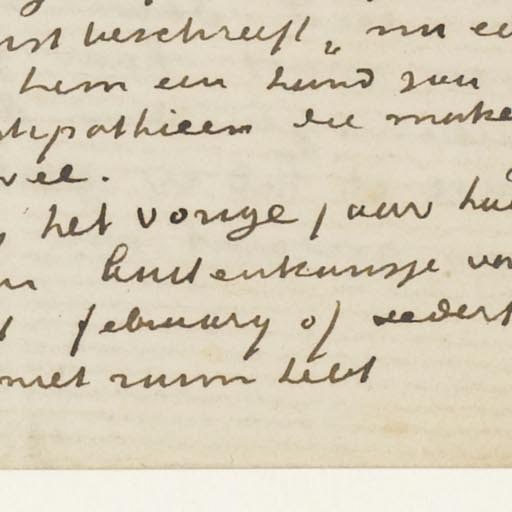 beschreeft „ nu ee
hem een hand van
tipathieen die make
vee.
het vorige jaar had
buitenkansje van
february of eedert
niet ruim hebt